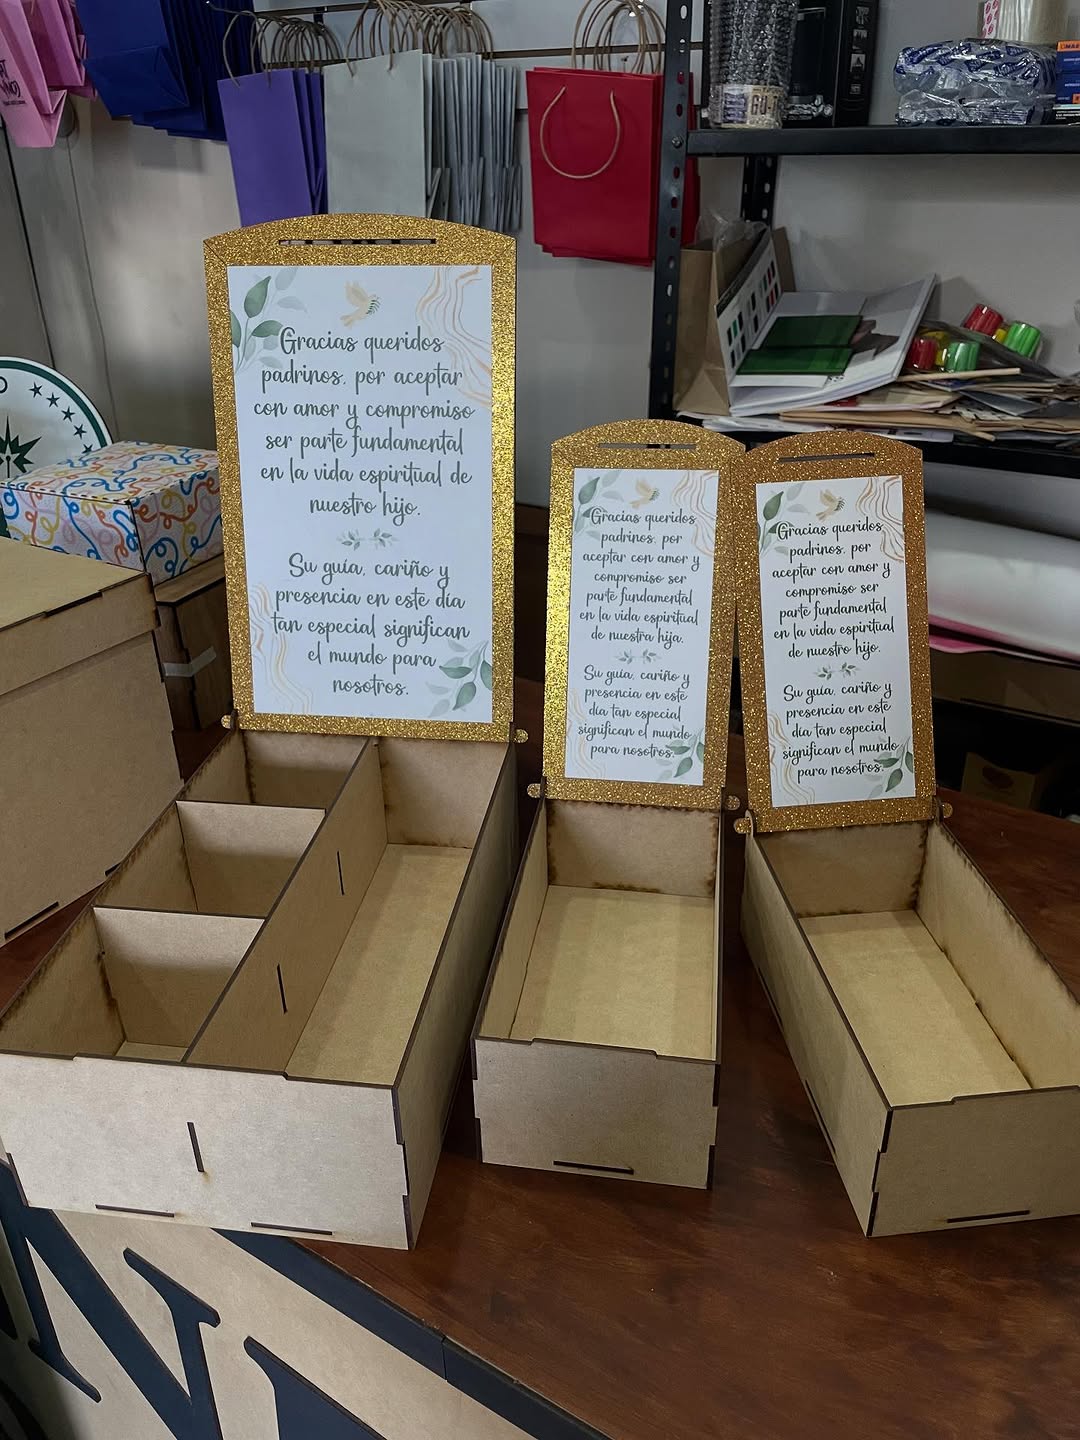 Gracias queridos
padrinos, por aceptar
con amor y compromiso
ser parte fundamental
en la vida espiritual de
nuestro hijo.
Su guía, cariño y
presencia en este día
tan especial significan
el mundo para
nosotros.
Gracias queridos
padrinos, por
aceptar con amor y
compromiso ser
parte fundamental
en la vida espiritual
de nuestra hija.
Su guía, cariño y
presencia en este
día tan especial
significan el mundo
para nosotros.
Gracias queridos
padrinos, por
aceptar con amor y
compromiso ser
parte fundamental
en la vida espiritual
de nuestro hijo.
Su guía, cariño y
presencia en este
día tan especial
significan el mundo
para nosotros.